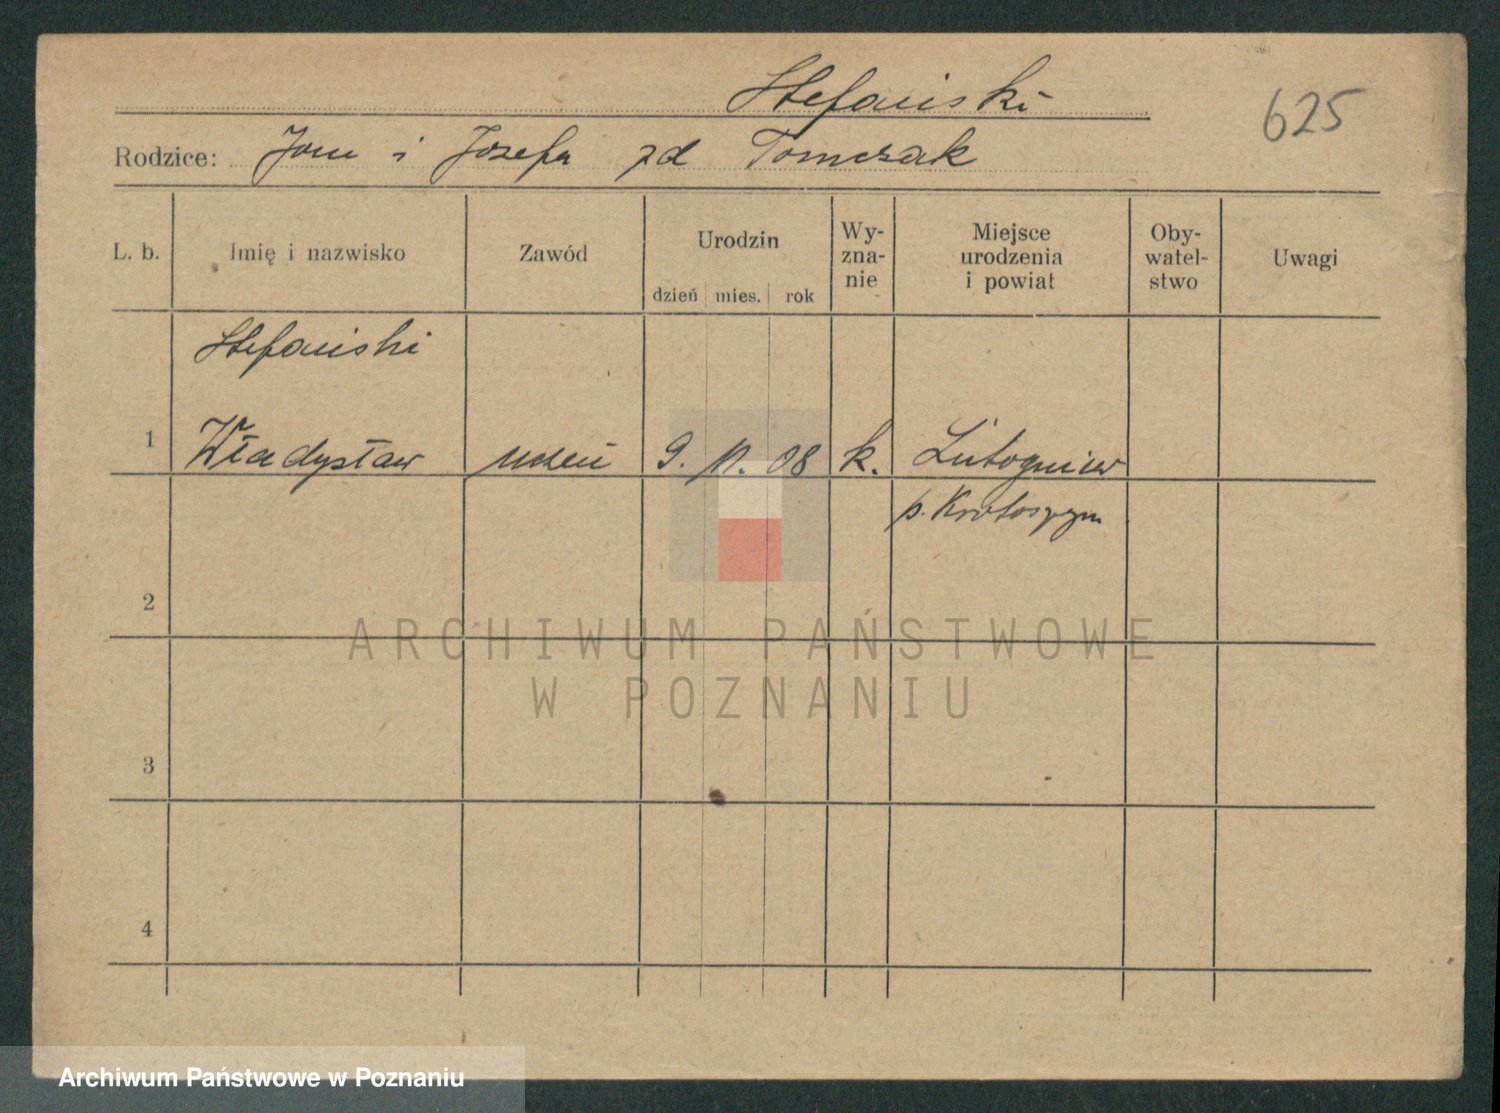 Stefański
625
Rodzice: Jan i Józefa zd Tomczak
L. b.
Imię i nazwisko
Zawód
Urodzin
dzień mies. rok
Wy-
zna-
nie
Miejsce
urodzenia
i powiat
Oby-
watel-
stwo
Uwagi
Stefański
1 Władysław uczeń 9. 08 k. Lutogniew
p. Krotoszyn
2
3
4
ARCHIWUM PAŃSTWOWE
W POZNANIU
Archiwum Państwowe w Poznaniu